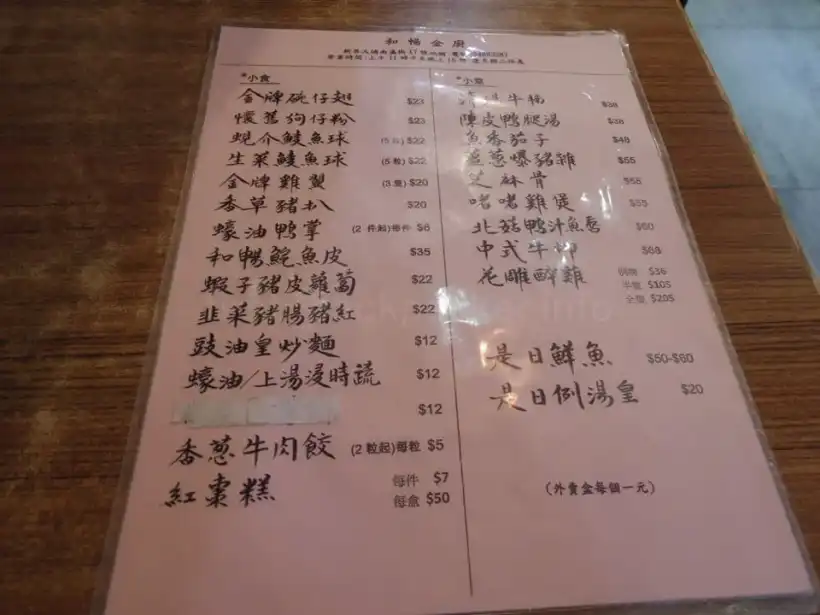 和暢金廚
*小食
金牌碗仔翅 $23
懷舊狗仔粉 $23
蜆介鯪魚球 (5粒) $22
生菜鯪魚球 (5粒) $22
金牌雞翼 (3隻) $20
香草豬扒 $20
蠔油鴨掌 (2 件起)每件 $6
和暢鯇魚皮 $35
蝦子豬皮蘿蔔 $22
韭菜豬腸豬紅 $22
豉油皇炒麵 $12
蠔油/上湯浸時蔬 $12
$12
香葱牛肉餃 (2粒起)每粒 $5
紅棗糕 每件 $7
每盒 $50
*小菜
牛楊 $38
陳皮鴨腿湯 $38
魚香茄子 $48
葱爆豬雜 $55
芝麻骨 $55
啫啫雞煲 $55
北菇鴨汁魚唇 $60
中式牛柳 $68
花雕醉雞 例牌 $36
半隻 $105
全隻 $205
是日鮮魚 $50-$80
是日例湯皇 $20
(外賣盒每個一元)